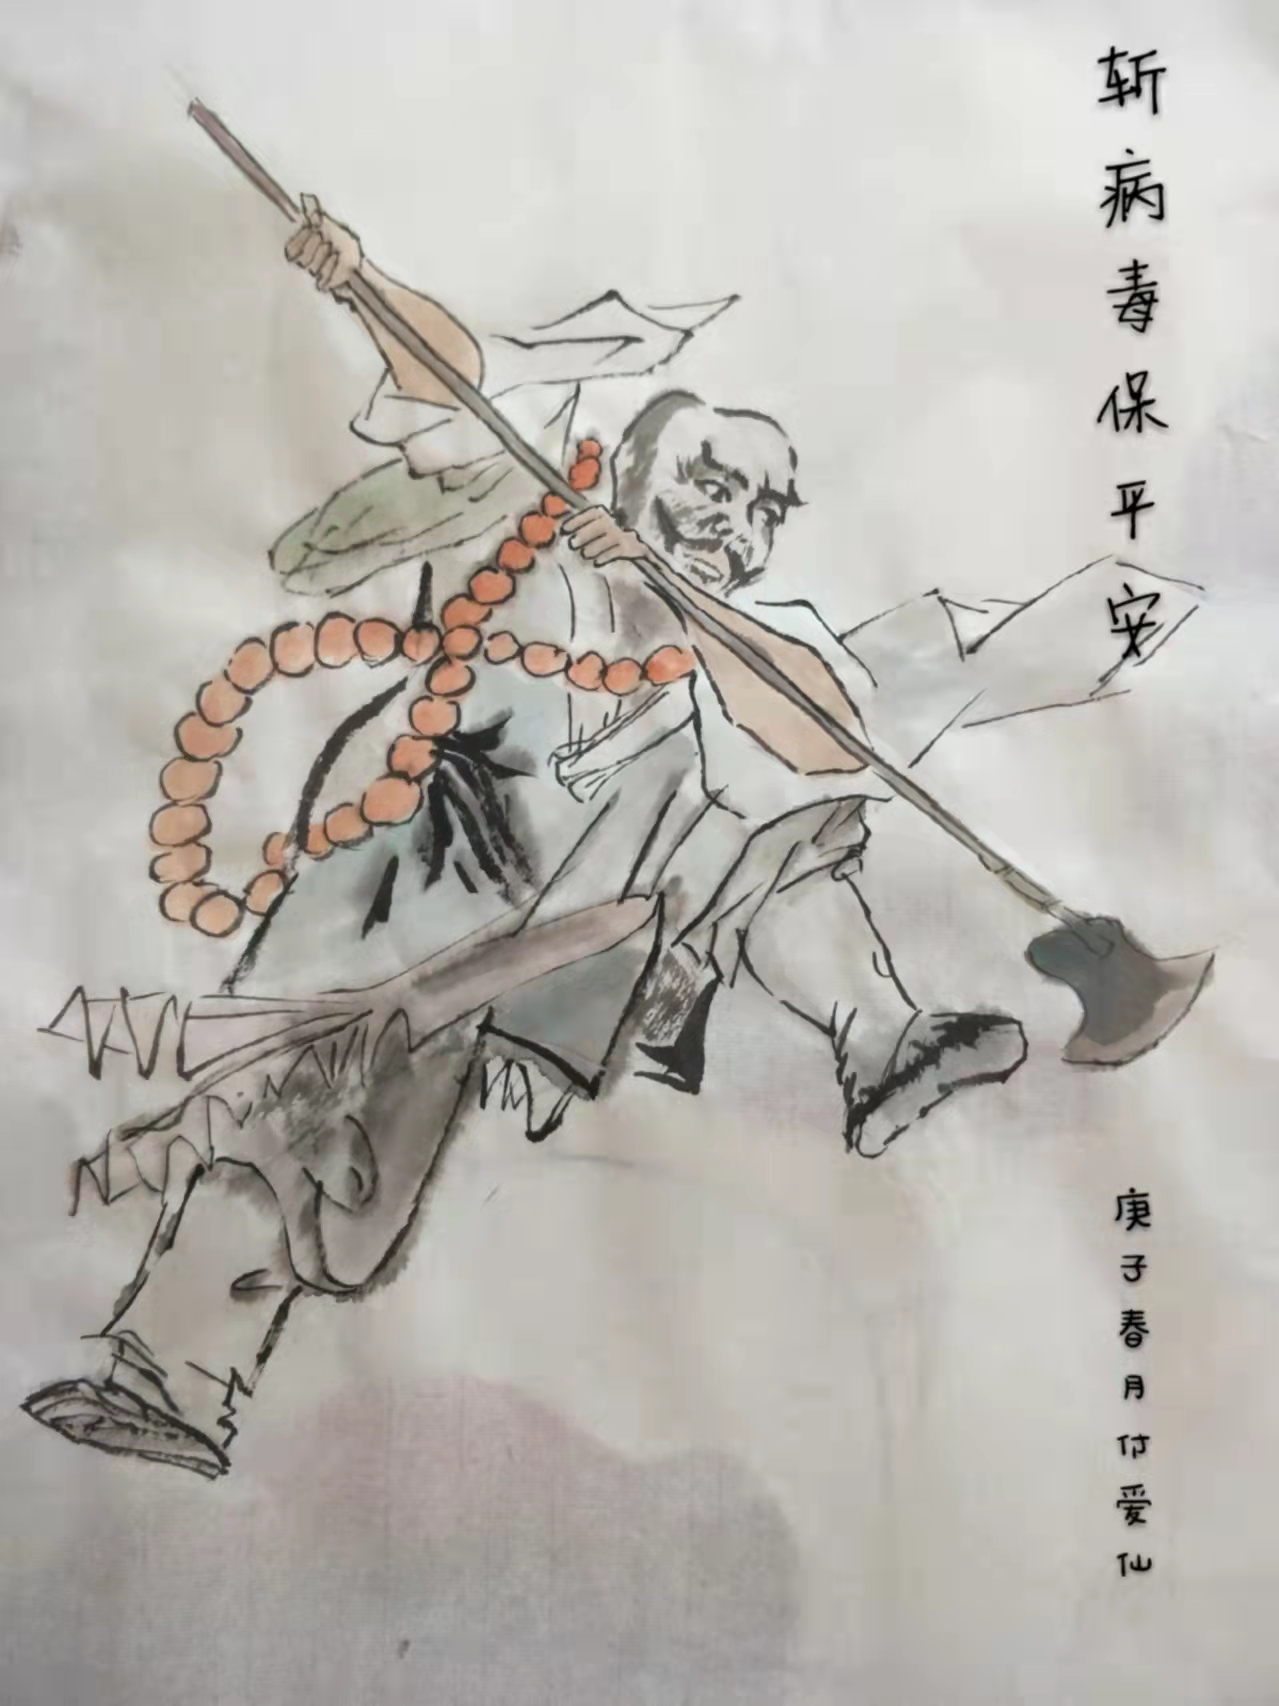 斩病毒保平安
庚子春月付爱仙